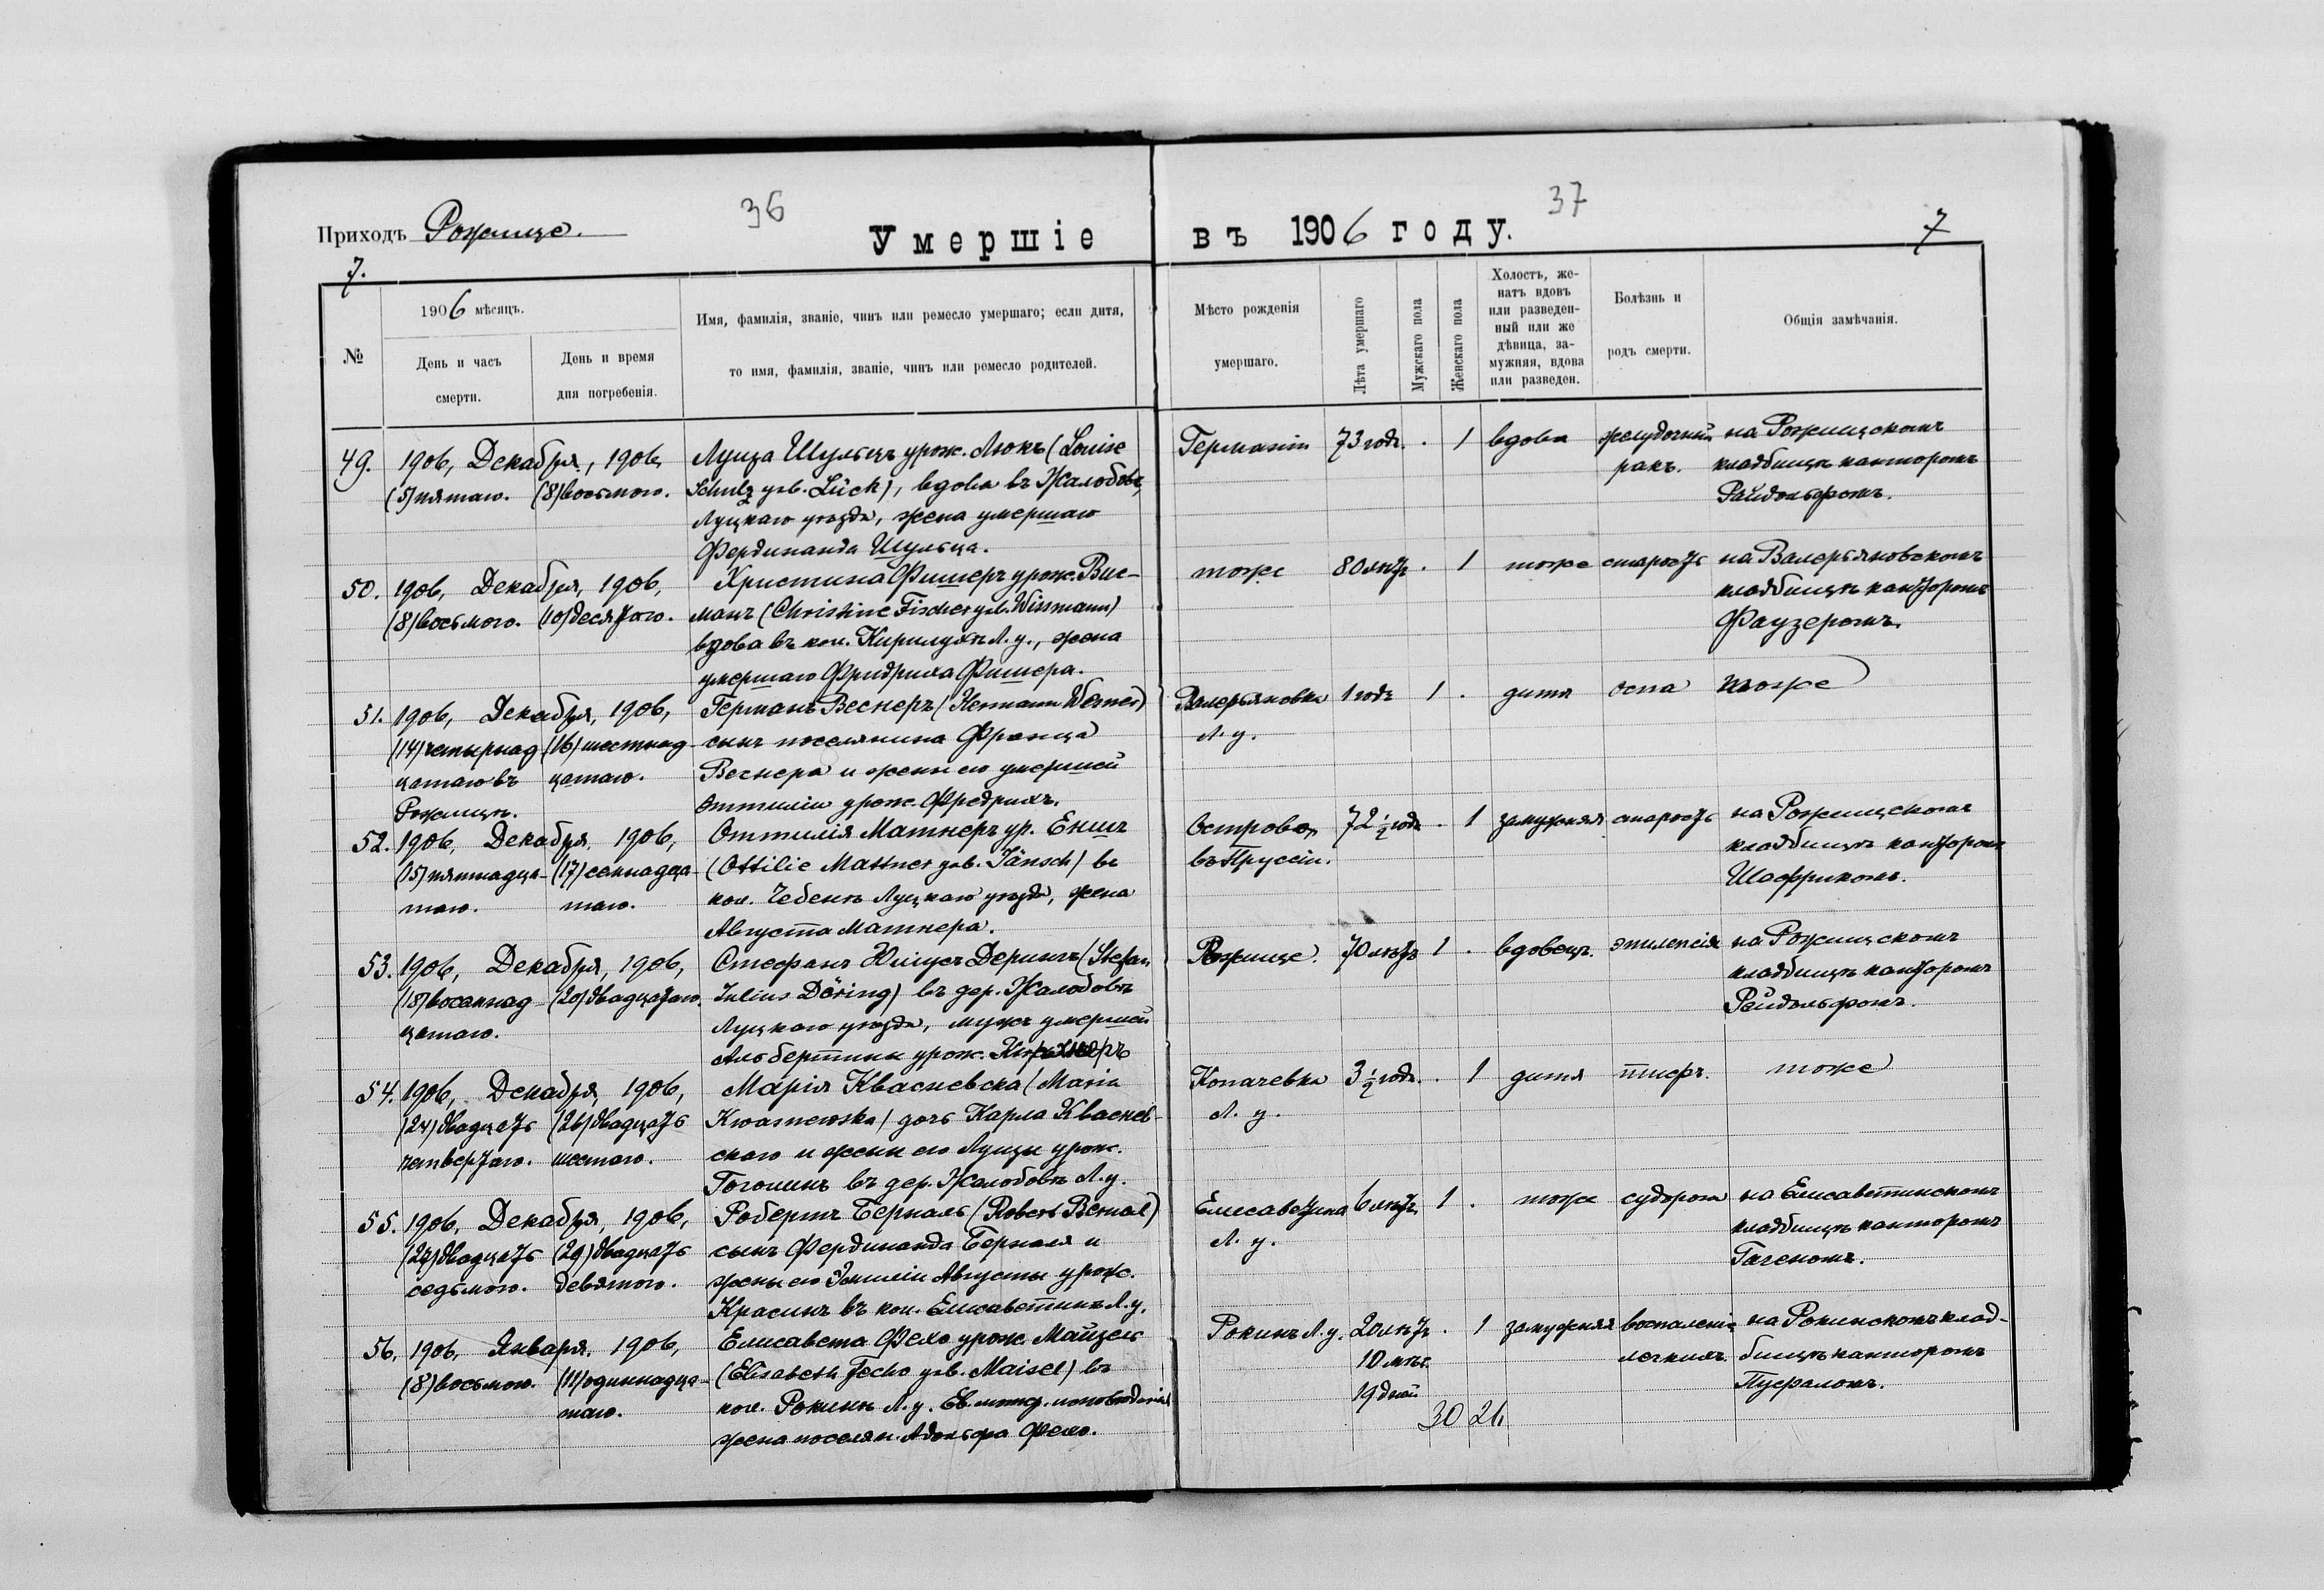 Приходъ Рожище.
36
Умершіе
7.
№
1906 мѣсяцъ.
День и часъ
смерти.
День и время
дня погребенія.
Имя, фамилія, званіе, чинъ или ремесло умершаго; если дитя,
то имя, фамилія, званіе, чинъ или ремесло родителей.
49. 1906, Декабря, 1906, Луиза Шульцъ урож. Люкъ (Louise
(5) пятаго. (8) восьмого. Schulz geb. Lück), вдова въ Жалобовѣ,
Луцкаго уѣзда, жена умершаго
Фердинанда Шульца.
50. 1906, Декабря, 1906, Христина Фишеръ урож. Вис-
(8) восьмого. (10) десятого. манъ (Christine Fischer geb. Wissmann)
вдова въ кол. Кирилухѣ Л. у., жена
умершаго Фридриха Фишера.
51. 1906, Декабря, 1906, Германъ Веснеръ (Hermann Wesner)
(14) четырнад (16) шестнад сынъ поселянина Франца
цатаго въ цатаго. Веснера и жены его умершей
Рожищѣ. Оттиліи урож. Фредрихъ.
52. 1906, Декабря, 1906, Оттилія Матнеръ ур. Енишъ
(15) пятнадца- (17) семнадца- (Ottilie Mattner geb. Jänsch) въ
таго. таго. кол. Чебенѣ Луцкаго уѣзда, жена
Августа Матнера.
53. 1906, Декабря, 1906, Стефанъ Юліусъ Дерингъ (Stefan
(18) восемнад (20) двадцатаго. Julius Döring) въ дер. Жалобовѣ
цатаго. Луцкаго уѣзда, мужъ умершей
Альбертины урож.
54. 1906, Декабря, 1906, Марія Квасневска (Maria
(24) двадцать (26) двадцать Kwasnewska) дочь Карла Кваснев-
четвертаго. шестаго. скаго и жены его Луизы урож.
Гогошинъ въ дер. Жалобовѣ Л. у.
55. 1906, Декабря, 1906, Робертъ Берналь (Robert Bernal)
(27) двадцать (29) двадцать сынъ Фердинанда Берналя и
седьмого. девятого. жены его Эмиліи Августы урож.
Красинъ въ кол. Елисаветинѣ Л. у.
56. 1906, Января, 1906, Елисавета Фехо урож. Майзель
(8) восьмого. (11) одиннадца- (Elisabeth Fecho geb. Maisel) въ
таго. кол. Рокинѣ Л. у. Ев. исповѣданія
жена поселян. Адольфа Фехо.
37
въ 1906 году.
7
Мѣсто рожденія
умершаго.
Лѣта умершаго
Мужскаго пола
Женскаго пола
Холостъ, же-
натъ вдовъ
или разведен-
ный или же
дѣвица, за-
мужняя, вдова
или разведен.
Болѣзнь и
родъ смерти.
Общія замѣчанія.
Германіи 73 года. . 1 вдова желудочный на Рожищскомъ
ракъ. кладбищѣ канторомъ
Рейдольфомъ.
тоже 80 лѣтъ . 1 тоже старость на Валерьяновскомъ
кладбищѣ канторомъ
Фаузеромъ.
Валерьяновка 1 годъ 1 . дитя оспа тоже
Л. у.
Островѣ 72 1/2 года . 1 замужняя старость на Рожищскомъ
въ Пруссіи. кладбищѣ канторомъ
Шафрикомъ.
Рожище. 70 лѣтъ 1 . вдовецъ. эпилепсія на Рожищскомъ
кладбищѣ канторомъ
Рейдольфомъ.
Копачевка 3 1/2 года. . 1 дитя тифъ. тоже
Л. у.
Елисаветина 6 лѣтъ. 1 . тоже судорога на Елисаветинскомъ
Л. у. кладбищѣ канторомъ
Гагеномъ.
Рокинъ Л. у. 20 лѣтъ . 1 замужняя воспаленіе на Рокинскомъ клад-
10 мѣс. легкихъ. бищѣ канторомъ
19 дней Пуфаломъ.
30 26